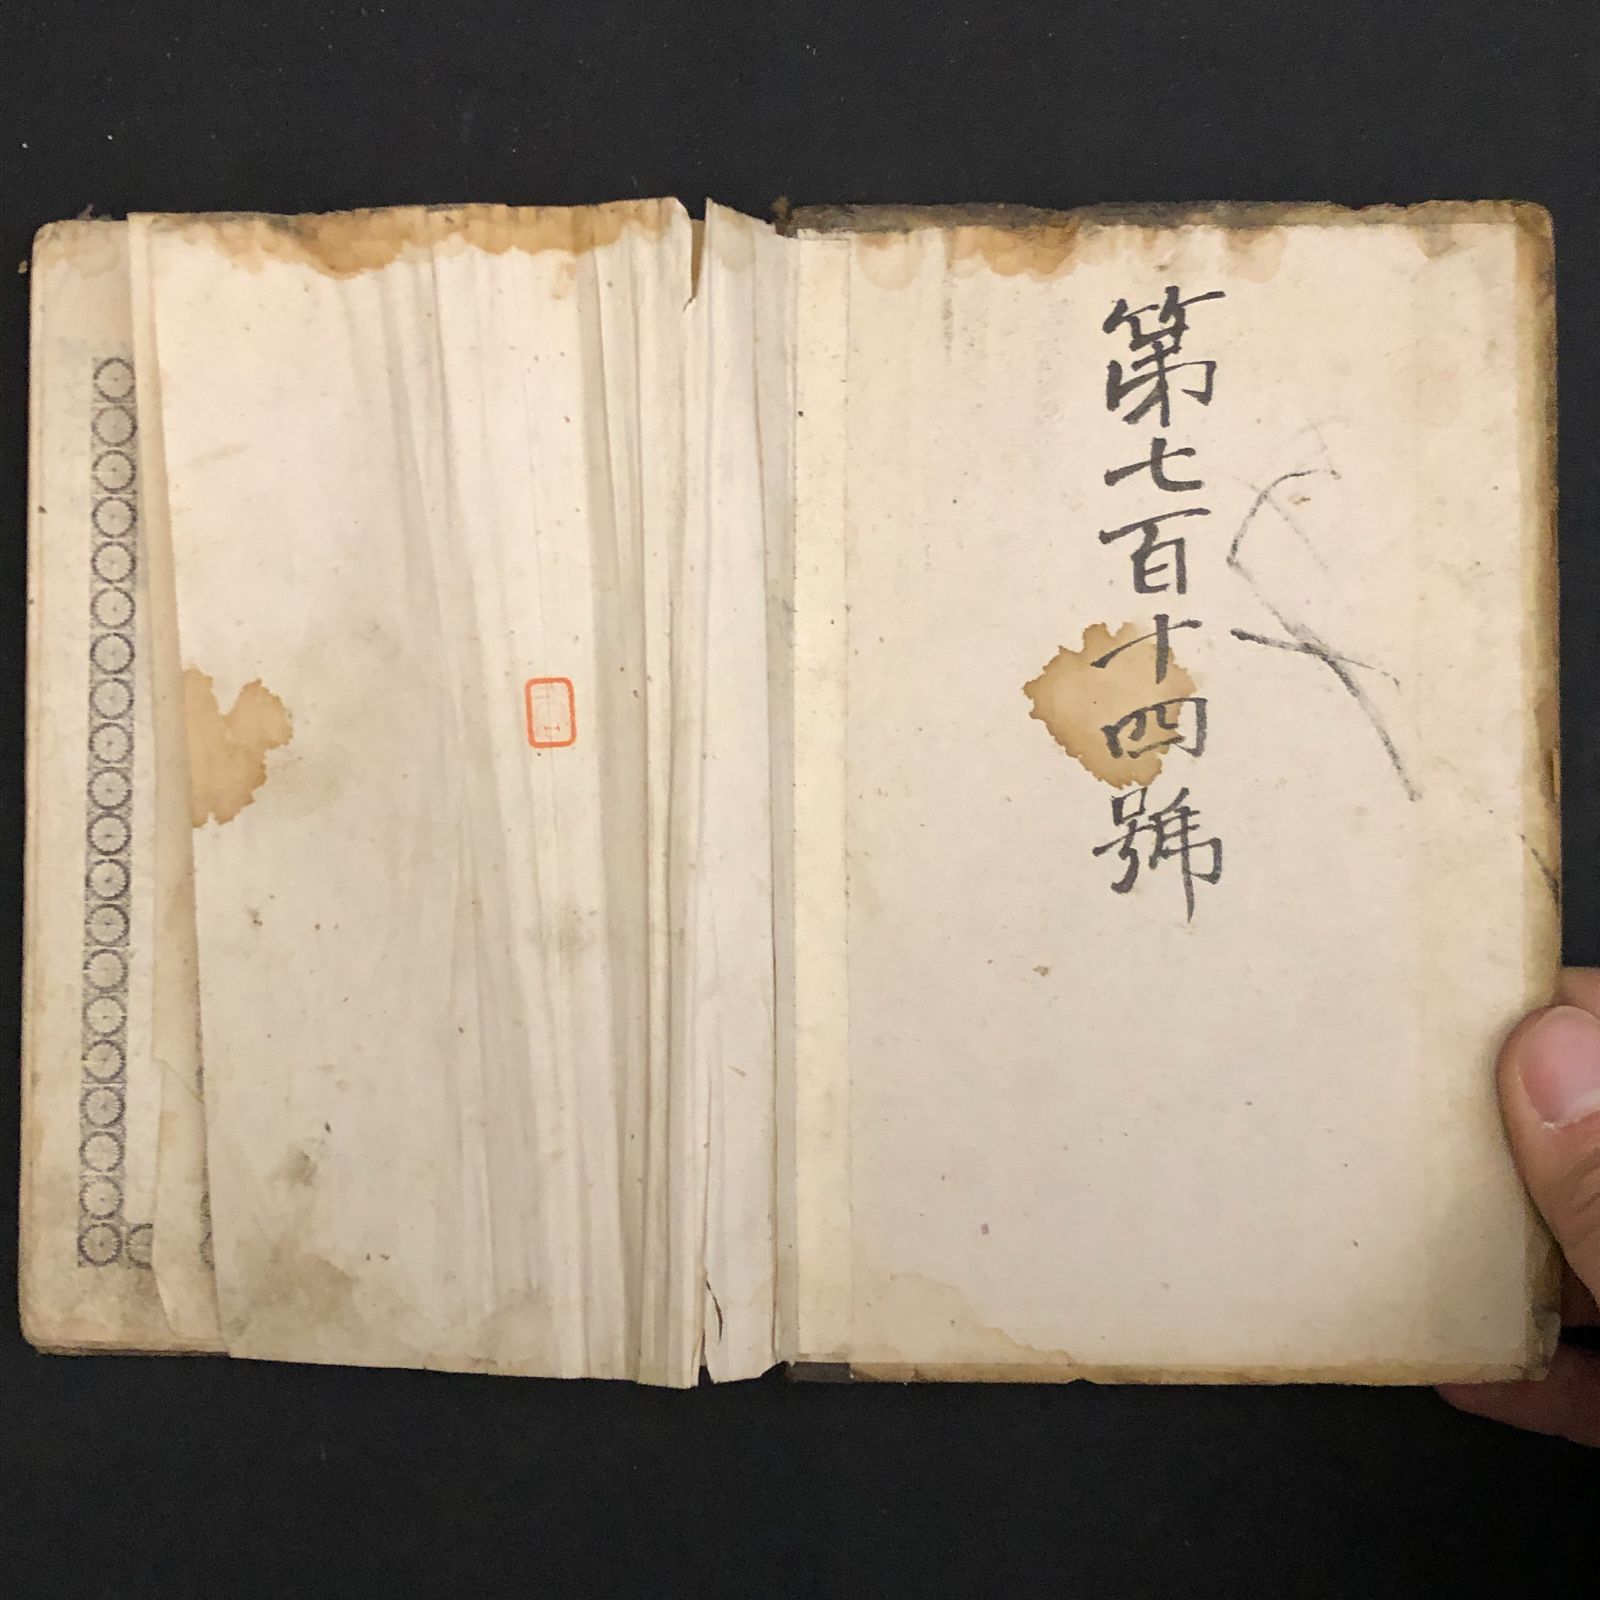 第七百十四號